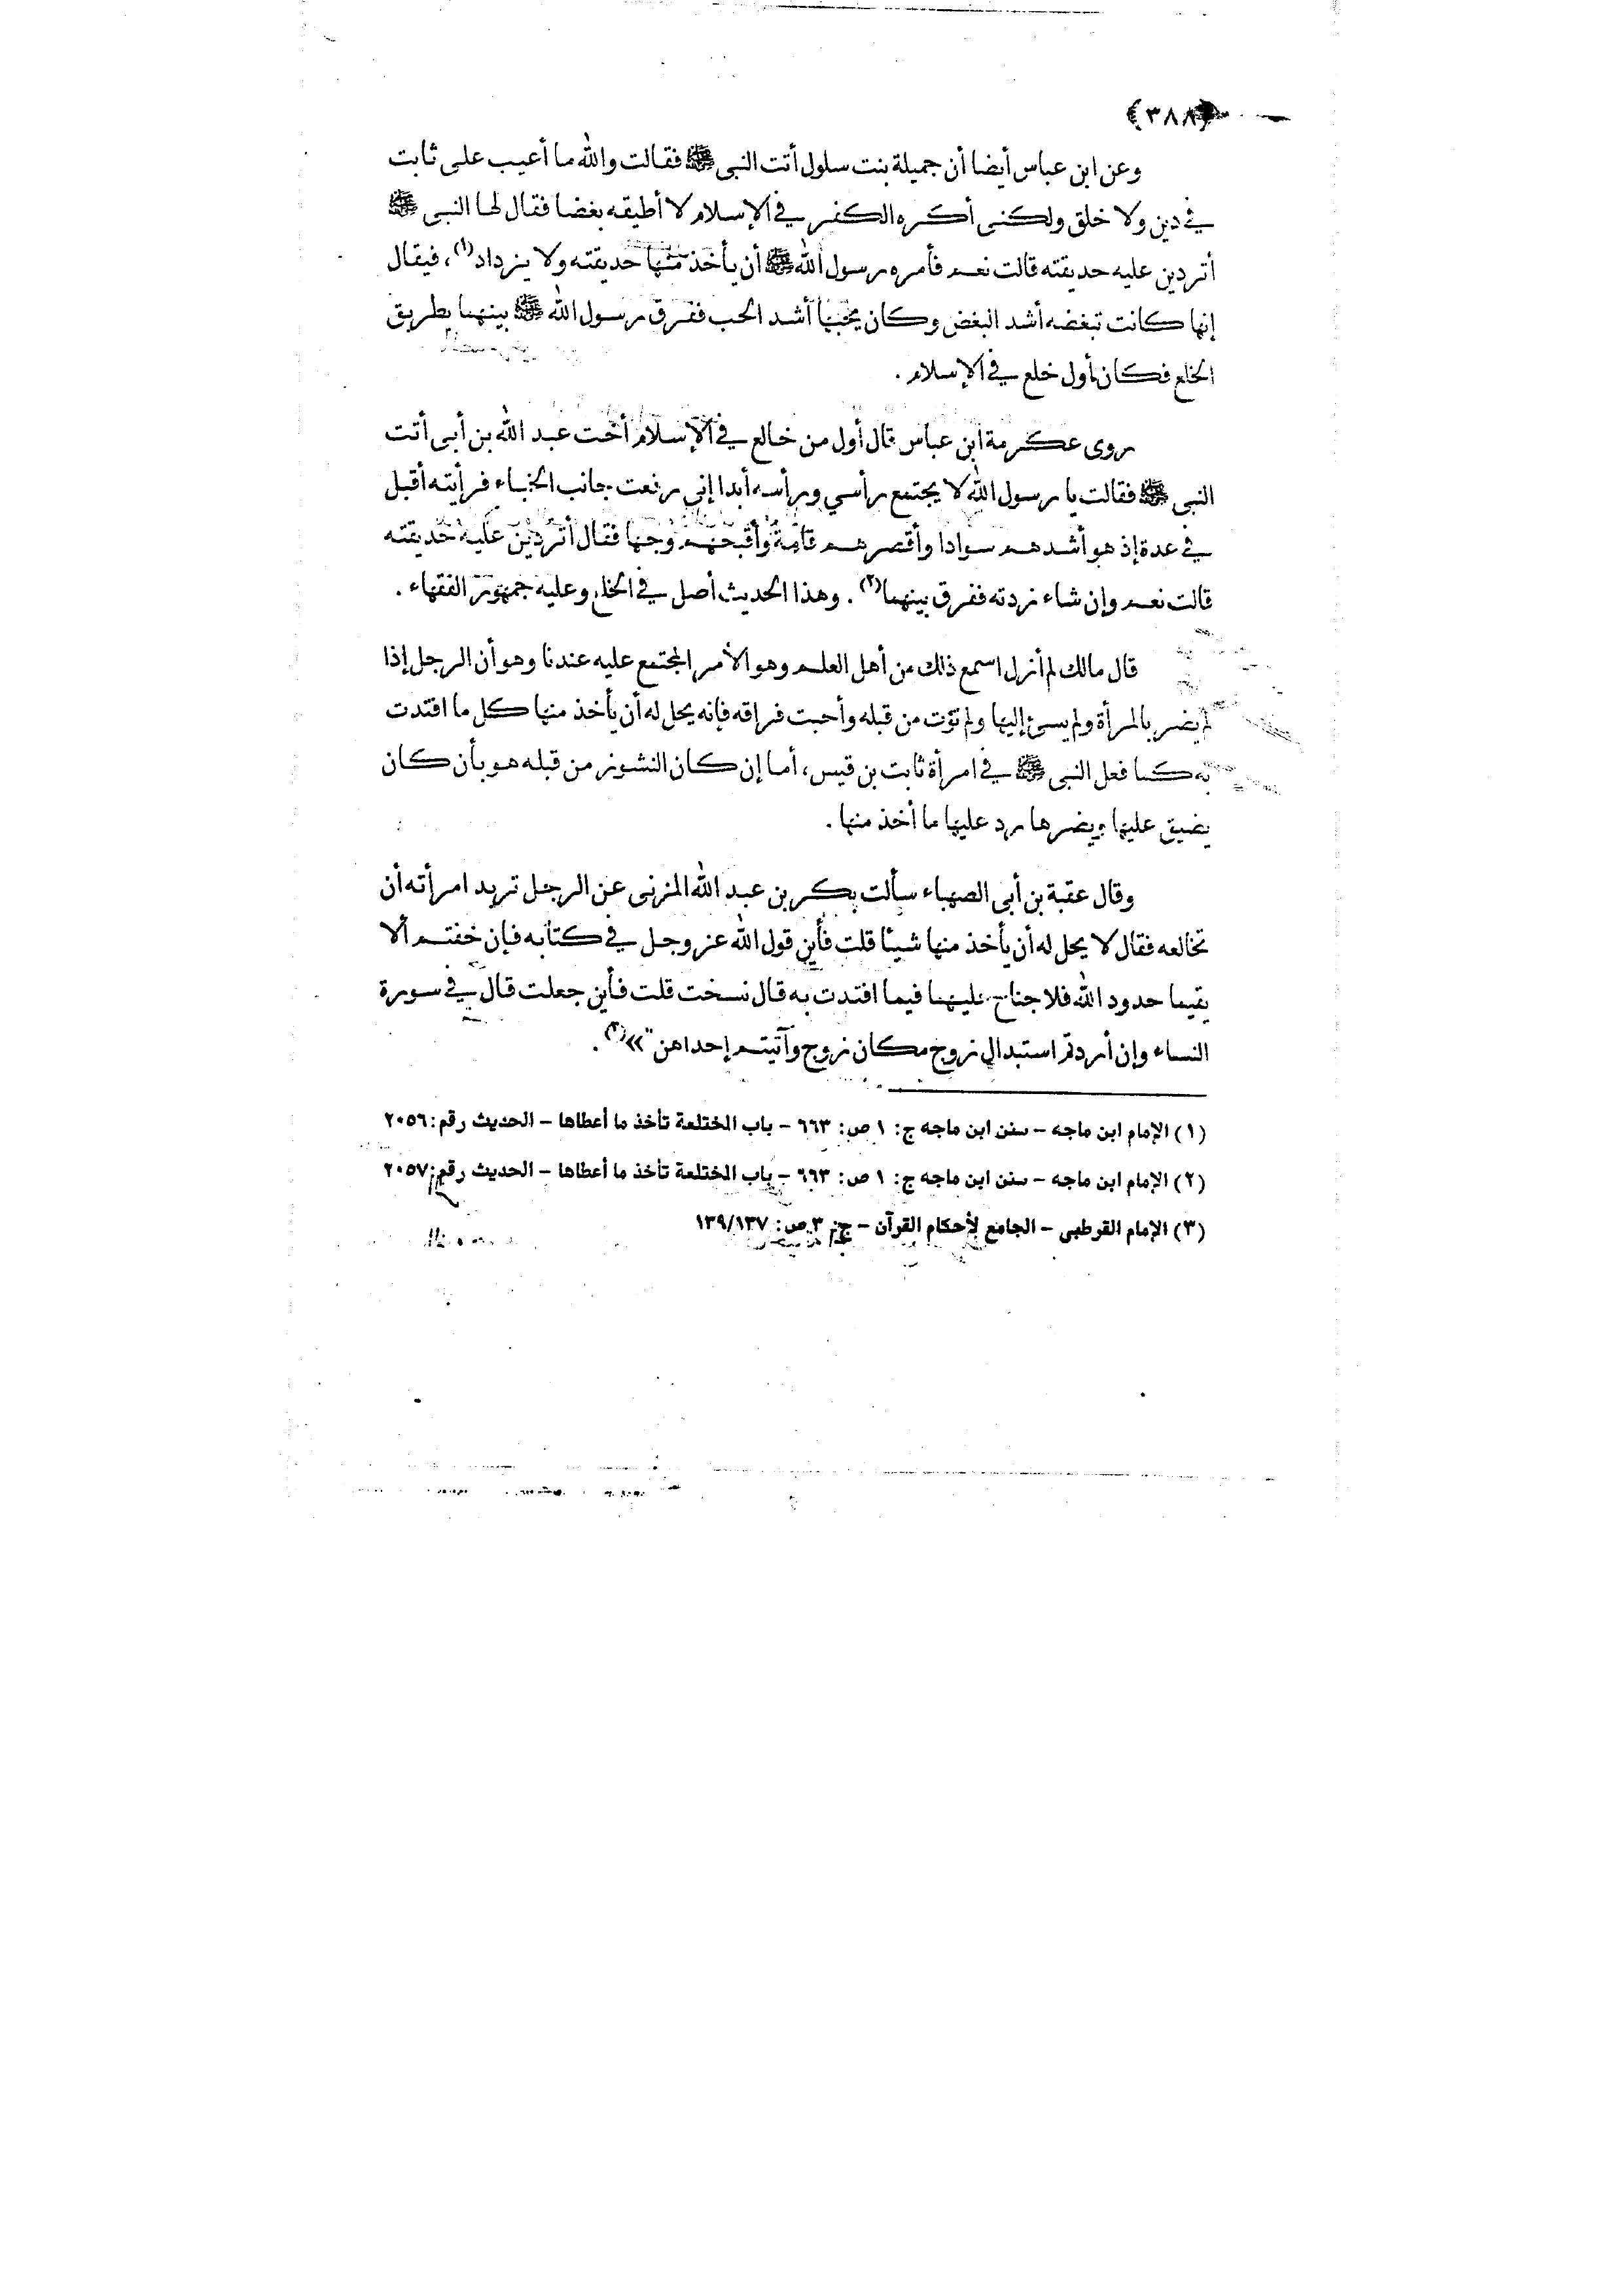 (٣٨٨)
وعن ابن عباس أيضا أن جميلة بنت سلول أتت النبى ﷺ فقالت والله ما أعيب على ثابت
في دين ولا خلق ولكنى أكره الكفر في الإسلام لا أطيقه بغضا فقال لها النبى ﷺ
أتردين عليه حديقته قالت نعم فأمره رسول الله ﷺ أن يأخذ منها حديقته ولا يزداد(١)، فيقال
إنها كانت تبغضه أشد البغض وكان يحبها أشد الحب ففرق رسول الله ﷺ بينهما بطريق
الخلع فكان أول خلع في الإسلام.
روى عكرمة ابن عباس قال أول من خالع في الإسلام أخت عبد الله بن أبى أتت
النبى ﷺ فقالت يا رسول الله لا يجتمع رأسي ورأسه أبدا إنى رفعت جانب الخباء فرأيته أقبل
في عدة إذ هو أشدهم سوادا وأقصرهم قامة وأقبحهم وجها فقال أتردين عليه حديقته
قالت نعم وإن شاء زدته ففرق بينهما(٢). وهذا الحديث أصل في الخلع وعليه جمهور الفقهاء.
قال مالك لم أزل اسمع ذلك من أهل العلم وهو الأمر المجتمع عليه عندنا وهو أن الرجل إذا
لم يضر بالمرأة ولم يسئ إليها ولم تؤت من قبله وأحبت فراقه فإنه يحل له أن يأخذ منها كل ما افتدت
به كما فعل النبى ﷺ في امرأة ثابت بن قيس، أما إن كان النشوز من قبله هو بأن كان
يضيق عليها ويضرها رد عليها ما أخذ منها.
وقال عقبة بن أبى الصهباء سألت بكر بن عبد الله المزنى عن الرجل تريد امرأته أن
تخالعه فقال لا يحل له أن يأخذ منها شيئا قلت فأين قول الله عز وجل في كتابه فإن خفتم ألا
يقيما حدود الله فلا جناح عليهما فيما افتدت به قال نسخت قلت فأين جعلت قال في سورة
النساء وإن أردتم استبدال زوج مكان زوج وآتيتم إحداهن"»(٣).
(١) الإمام ابن ماجه – سنن ابن ماجه ج: ١ ص: ٦٦٣ – باب المختلعة تأخذ ما أعطاها – الحديث رقم: ٢٠٥٦
(٢) الإمام ابن ماجه – سنن ابن ماجه ج: ١ ص: ٦٦٣ – باب المختلعة تأخذ ما أعطاها – الحديث رقم: ٢٠٥٧
(٣) الإمام القرطبي – الجامع لأحكام القرآن – ج: ٣ ص: ١٣٩/١٣٧